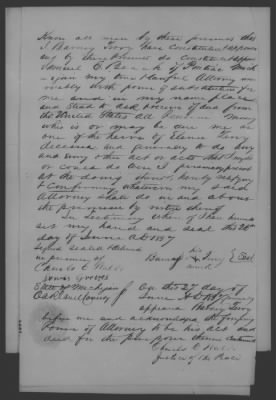 Know all men by these presents that
I Barney Ivory have constituted & appoin
ted & by these presents do constitute & appoint
Samuel E. Beach of Pontiac Mich
igan my true & lawful Attorney irre
vocably with power of substitution for
me and in my name place
and stead to ask procure of and from
the United States all Pension Money
which is or may be due me as
one of the heirs of Ivory
deceased and generally to do any
and every other act or acts that I might
or could do were I personally present
at the doing thereof, hereby ratifying
& confirming whatever my said
Attorney shall do in and about
the premises by virtue hereof
In testimony whereof I have hereunto
set my hand and seal this 27th
day of June A.D. 1857
Signed sealed & delivered
in presence of
his
Barney X Ivory Seal
mark
Charles C. Wells
State of Michigan }
Oakland County }
On the 27 day of
June A.D. 1857 personally
appeared Barney Ivory
before me and acknowledged the foregoing
Power of Attorney to be his act and
deed for the purposes therein contained
Justice of the Peace